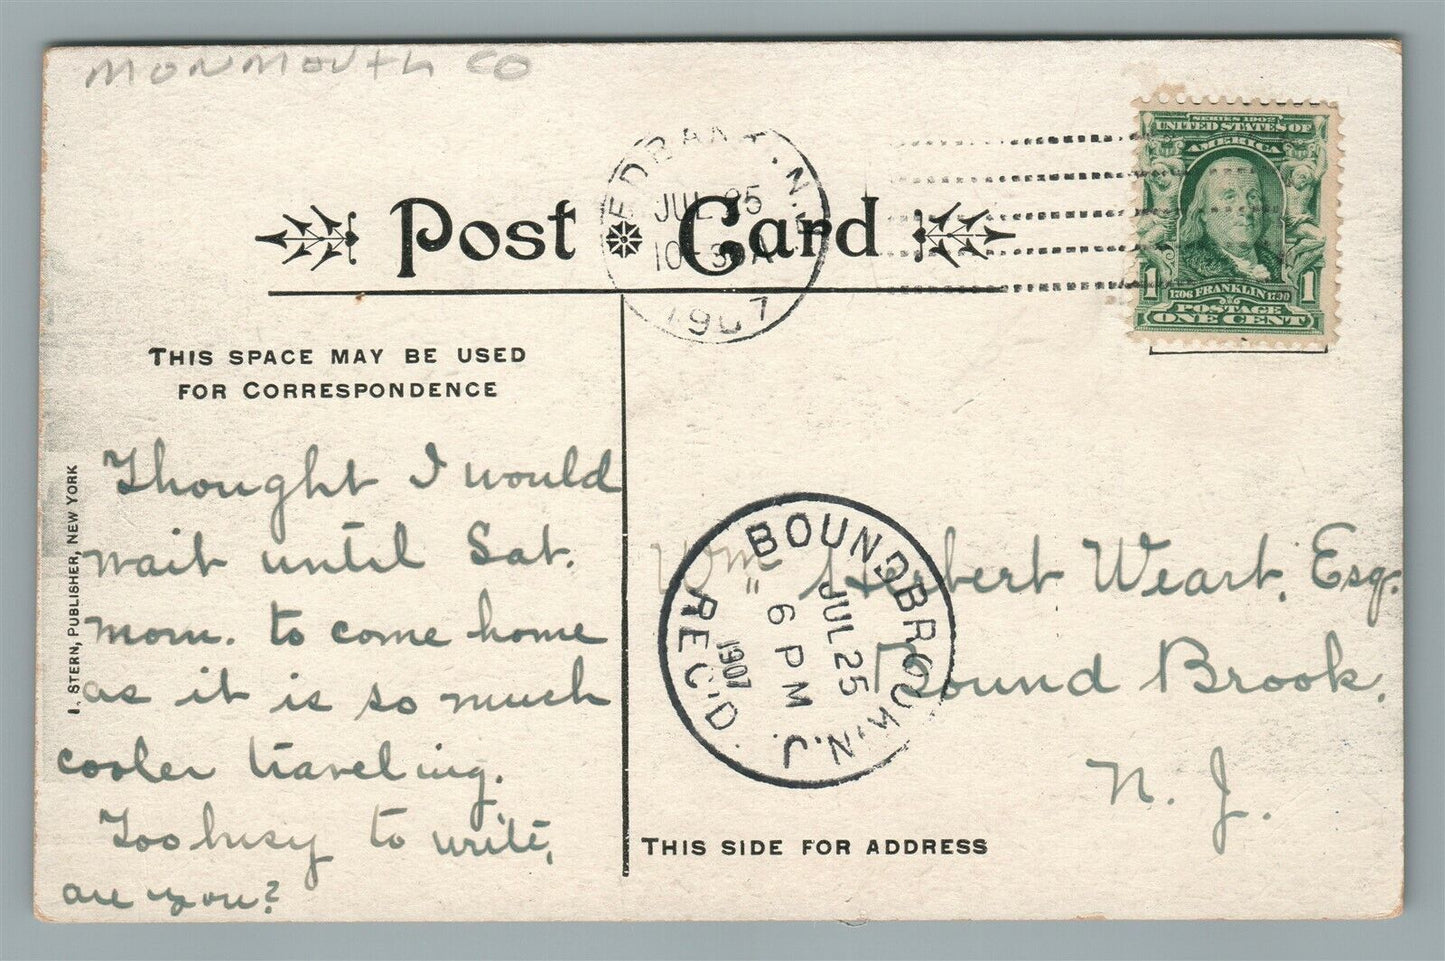 MONMOUTH CO
REDBANK, N.J.
JUL 25
1907
SERIES 1902
UNITED STATES OF
AMERICA
1 1706 FRANKLIN 1790 1
POSTAGE
ONE CENT
Post Card
THIS SPACE MAY BE USED
FOR CORRESPONDENCE
I. STERN, PUBLISHER, NEW YORK
Thought I would
wait until Sat.
morn. to come home
as it is so much
cooler traveling.
Too busy to write,
are you?
BOUNDBROOK, N.J.
JUL 25
6 PM
1907
REC'D.
Wm Herbert Weart, Esq.
Bound Brook,
N. J.
THIS SIDE FOR ADDRESS